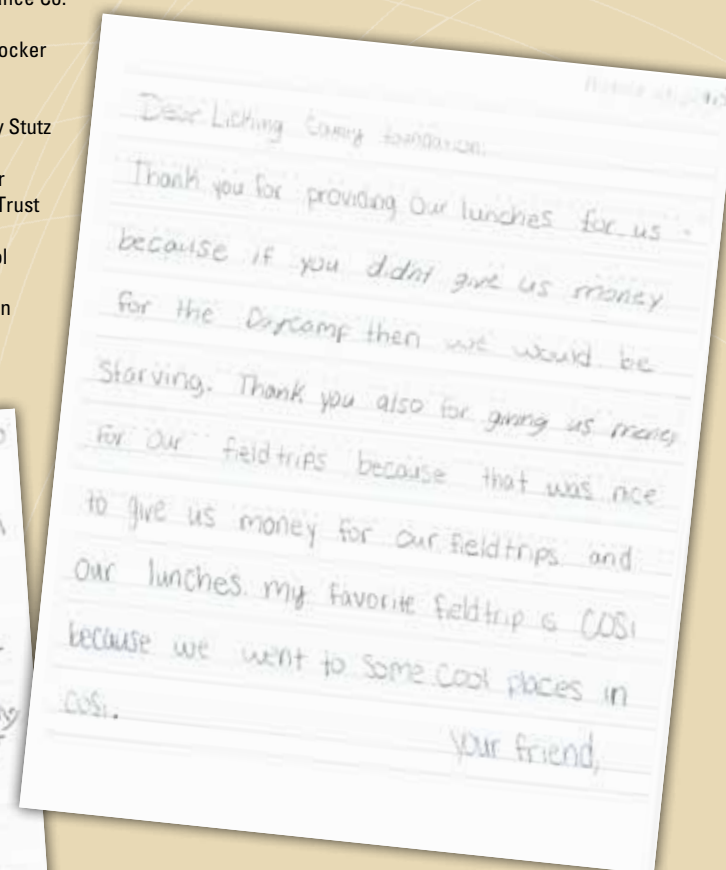 ance Co.
ocker
y Stutz
r
Trust
ol
n
Dear Licking County Foundation.
Thank you for providing our lunches for us
because if you didnt give us money
for the Daycamp then we would be
Starving. Thank you also for giving us money
for our fieldtrips because that was nice
to give us money for our fieldtrips and
our lunches. my favorite fieldtrip is COSI
because we went to some cool places in
COSI.
your friend,